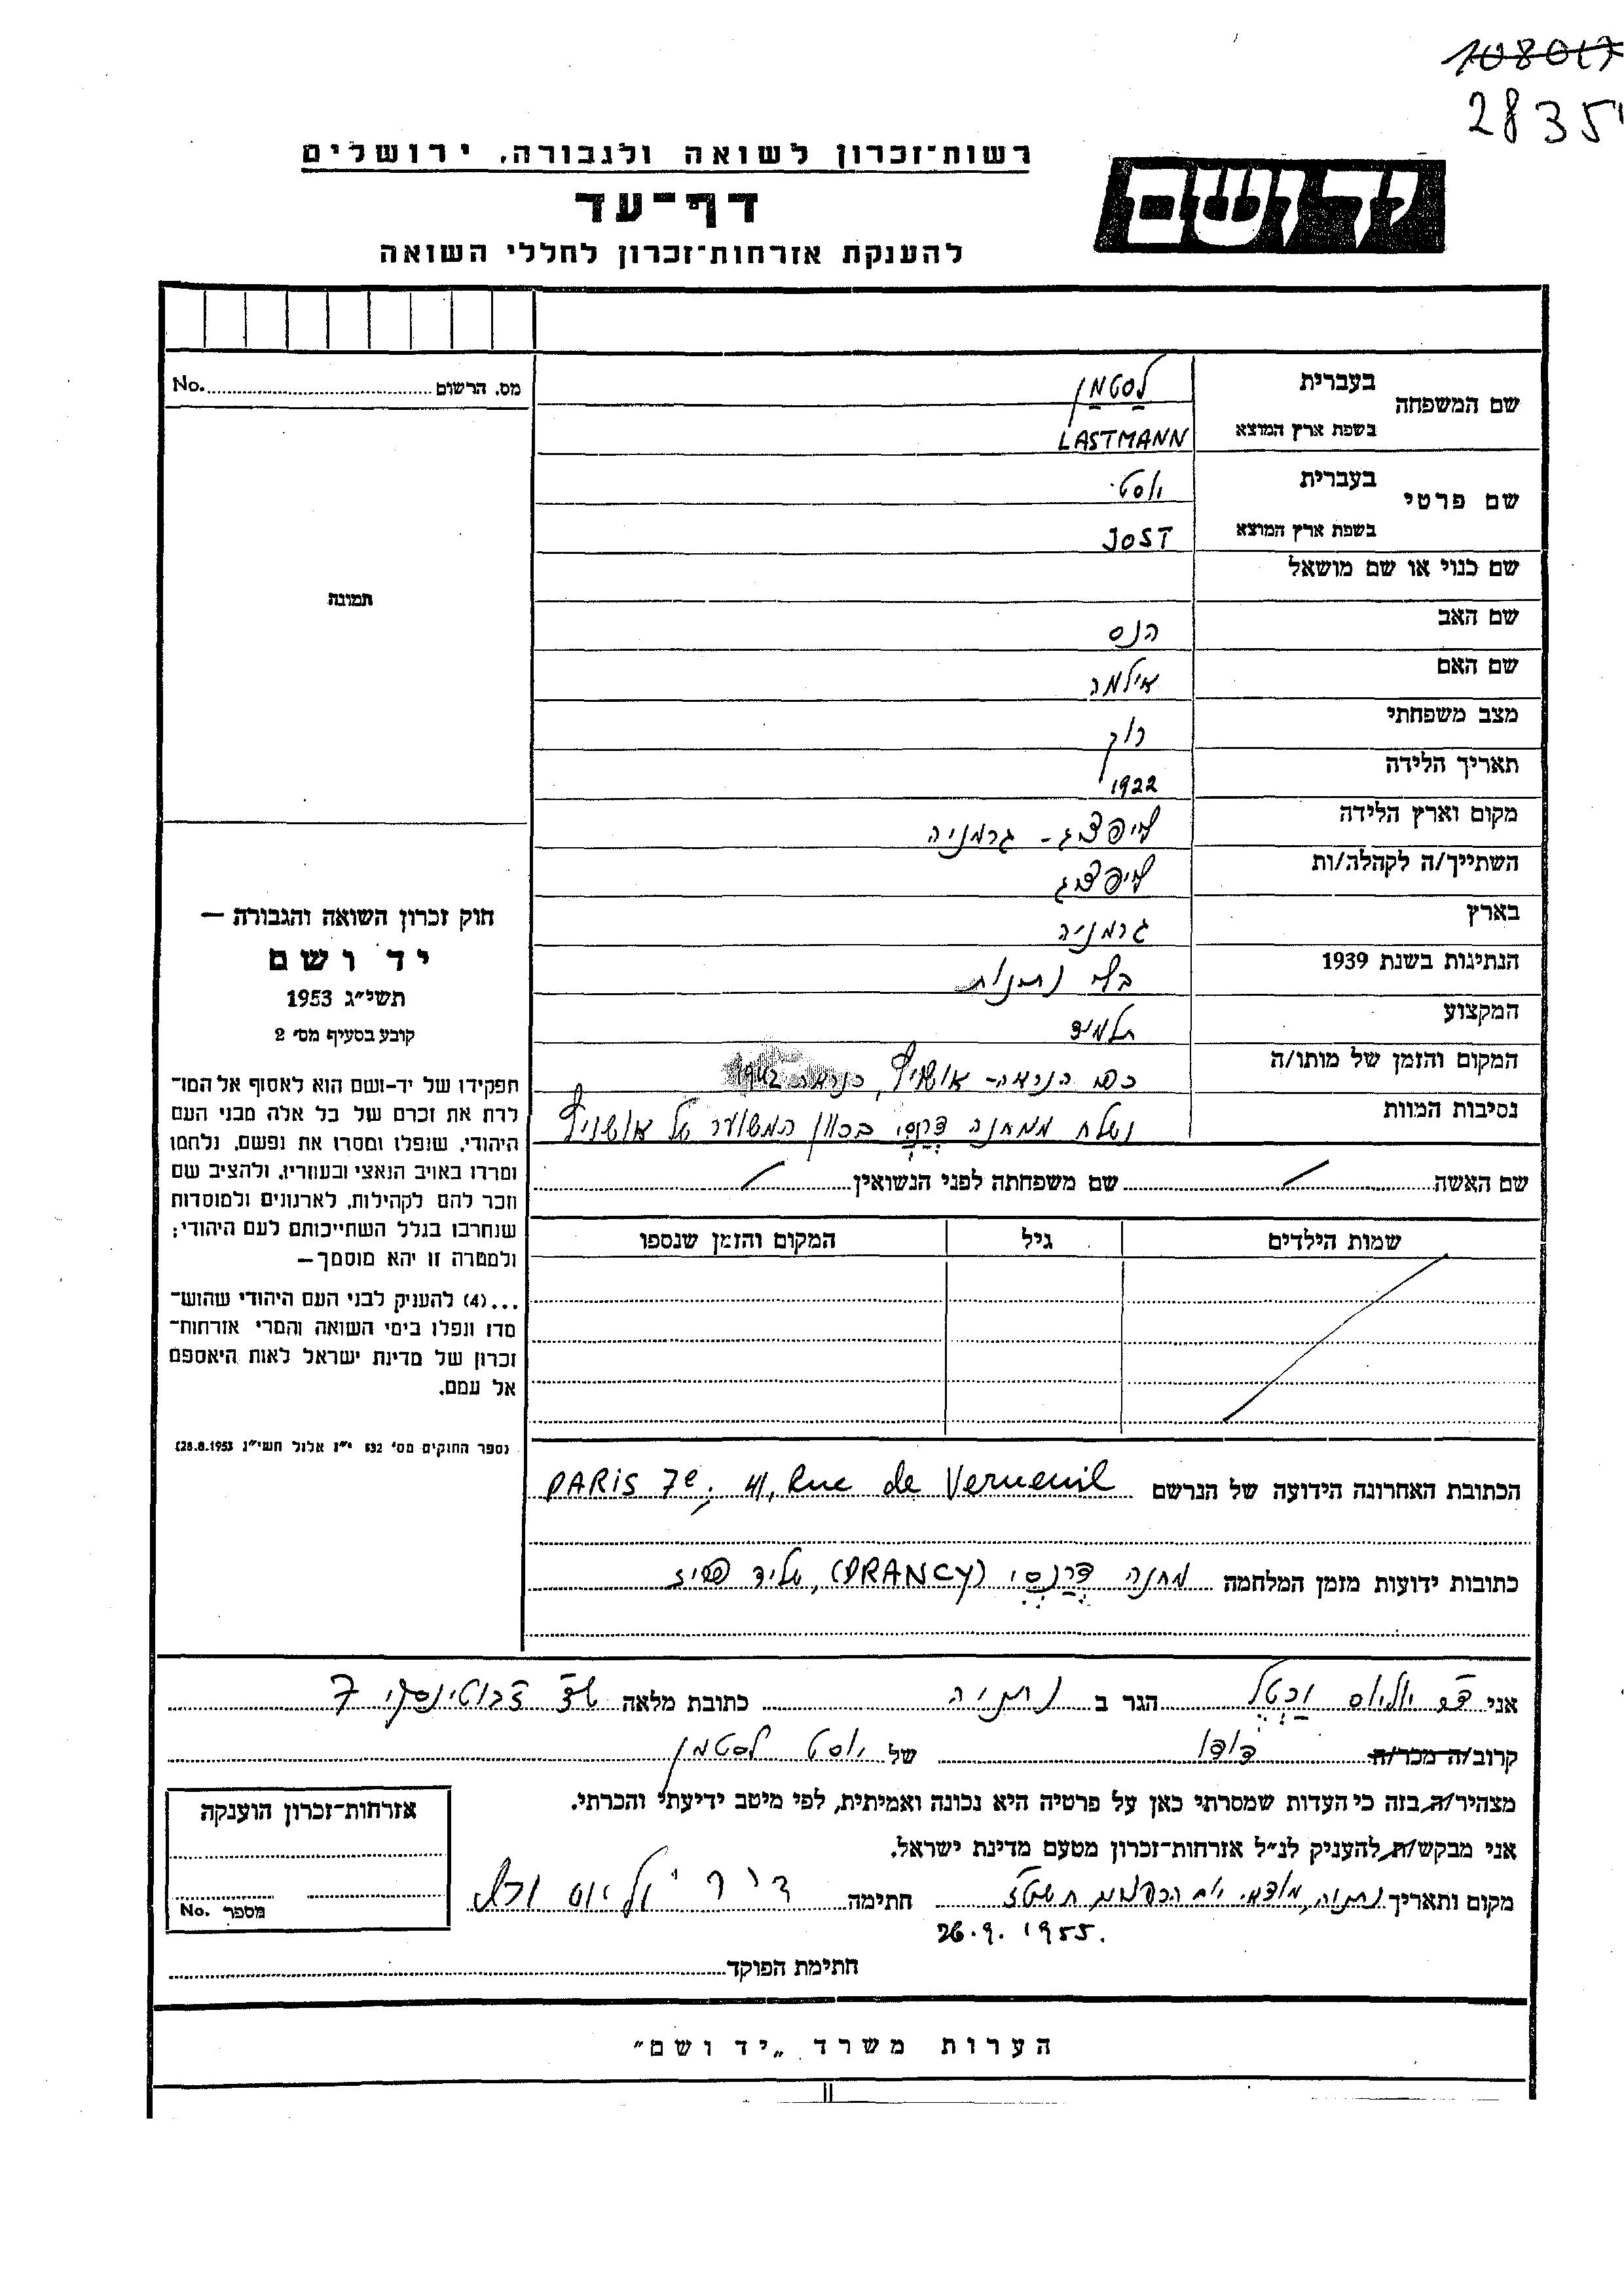 108017
2835
רשות־זכרון לשואה ולגבורה, ירושלים
יד ושם
דף־עד
להענקת אזרחות־זכרון לחללי השואה
שם המשפחה בעברית לסטמן
בשפת ארץ המוצא LASTMANN
שם פרטי בעברית יוסט
בשפת ארץ המוצא JOST
שם כנוי או שם מושאל
שם האב הנס
שם האם אילמה
מצב משפחתי רווק
תאריך הלידה 1922
מקום וארץ הלידה לייפציג - גרמניה
השתייך/ה לקהלה/ות לייפציג
בארץ גרמניה
הנתינות בשנת 1939 בלי נתינות
המקצוע תלמיד
המקום והזמן של מותו/ה כפי הנראה - אושויץ, כנראה 1942
נסיבות המוות נשלח ממחנה דרנסי בכוון המשוער של אושויץ
מס. הרשום No.
תמונה
חוק זכרון השואה והגבורה —
יד ושם
תשי״ג 1953
קובע בסעיף מס׳ 2
תפקידו של יד-ושם הוא לאסוף אל המו־
לדת את זכרם של כל אלה מבני העם
היהודי, שנפלו ומסרו את נפשם, נלחמו
ומרדו באויב הנאצי ובעוזריו, ולהציב שם
וזכר להם לקהילות, לארגונים ולמוסדות
שנחרבו בגלל השתייכותם לעם היהודי;
ולמטרה זו יהא מוסמך—
...(4) להעניק לבני העם היהודי שהוש־
מדו ונפלו בימי השואה והמרי אזרחות־
זכרון של מדינת ישראל לאות היאספם
אל עמם.
(ספר החוקים מס׳ 132 י״ז אלול תשי״ג 28.8.1953)
שם האשה / שם משפחתה לפני הנשואין /
שמות הילדים גיל המקום והזמן שנספו
הכתובת האחרונה הידועה של הנרשם PARIS 7e, 41, Rue de Verneuil
כתובות ידועות מזמן המלחמה מחנה דרנסי (DRANCY), על יד פריז
אני ד״ר יוליוס הגר ב נתניה כתובת מלאה שד׳ ז׳בוטינסקי 7
קרוב/ה מכר/ה דודו של יוסט לסטמן
מצהיר/ה בזה כי העדות שמסרתי כאן על פרטיה היא נכונה ואמיתית, לפי מיטב ידיעתי והכרתי.
אני מבקש/ת להעניק לנ״ל אזרחות־זכרון מטעם מדינת ישראל.
מקום ותאריך נתניה, מוצאי יום הכפורים תשט״ז חתימה ד״ר יוליוס
26.9.1955.
אזרחות־זכרון הוענקה
מספר No.
חתימת הפוקד
הערות משרד „יד ושם״